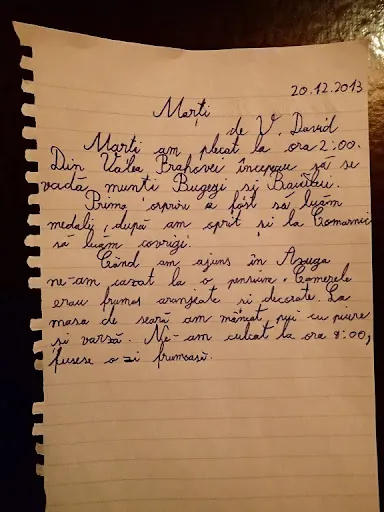 20.12.2013
Marți
de V. David
Marți am plecat la ora 2:00.
Din Valea Brahovei începeau să se
vadă munti Bugegi și Baiului.
Prima oprire a fost să luăm
medalii, după am oprit și la Comarnic
să luăm covrigi.
Când an ajuns în Azuga
ne-am cazat la o pensiune. Camerele
erau frumos aranjeate și decorate. La
masa de seară am mâncat pui cu piure
și varză. Ne-am culcat la ora 8:00,
fusese o zi frumoasă.